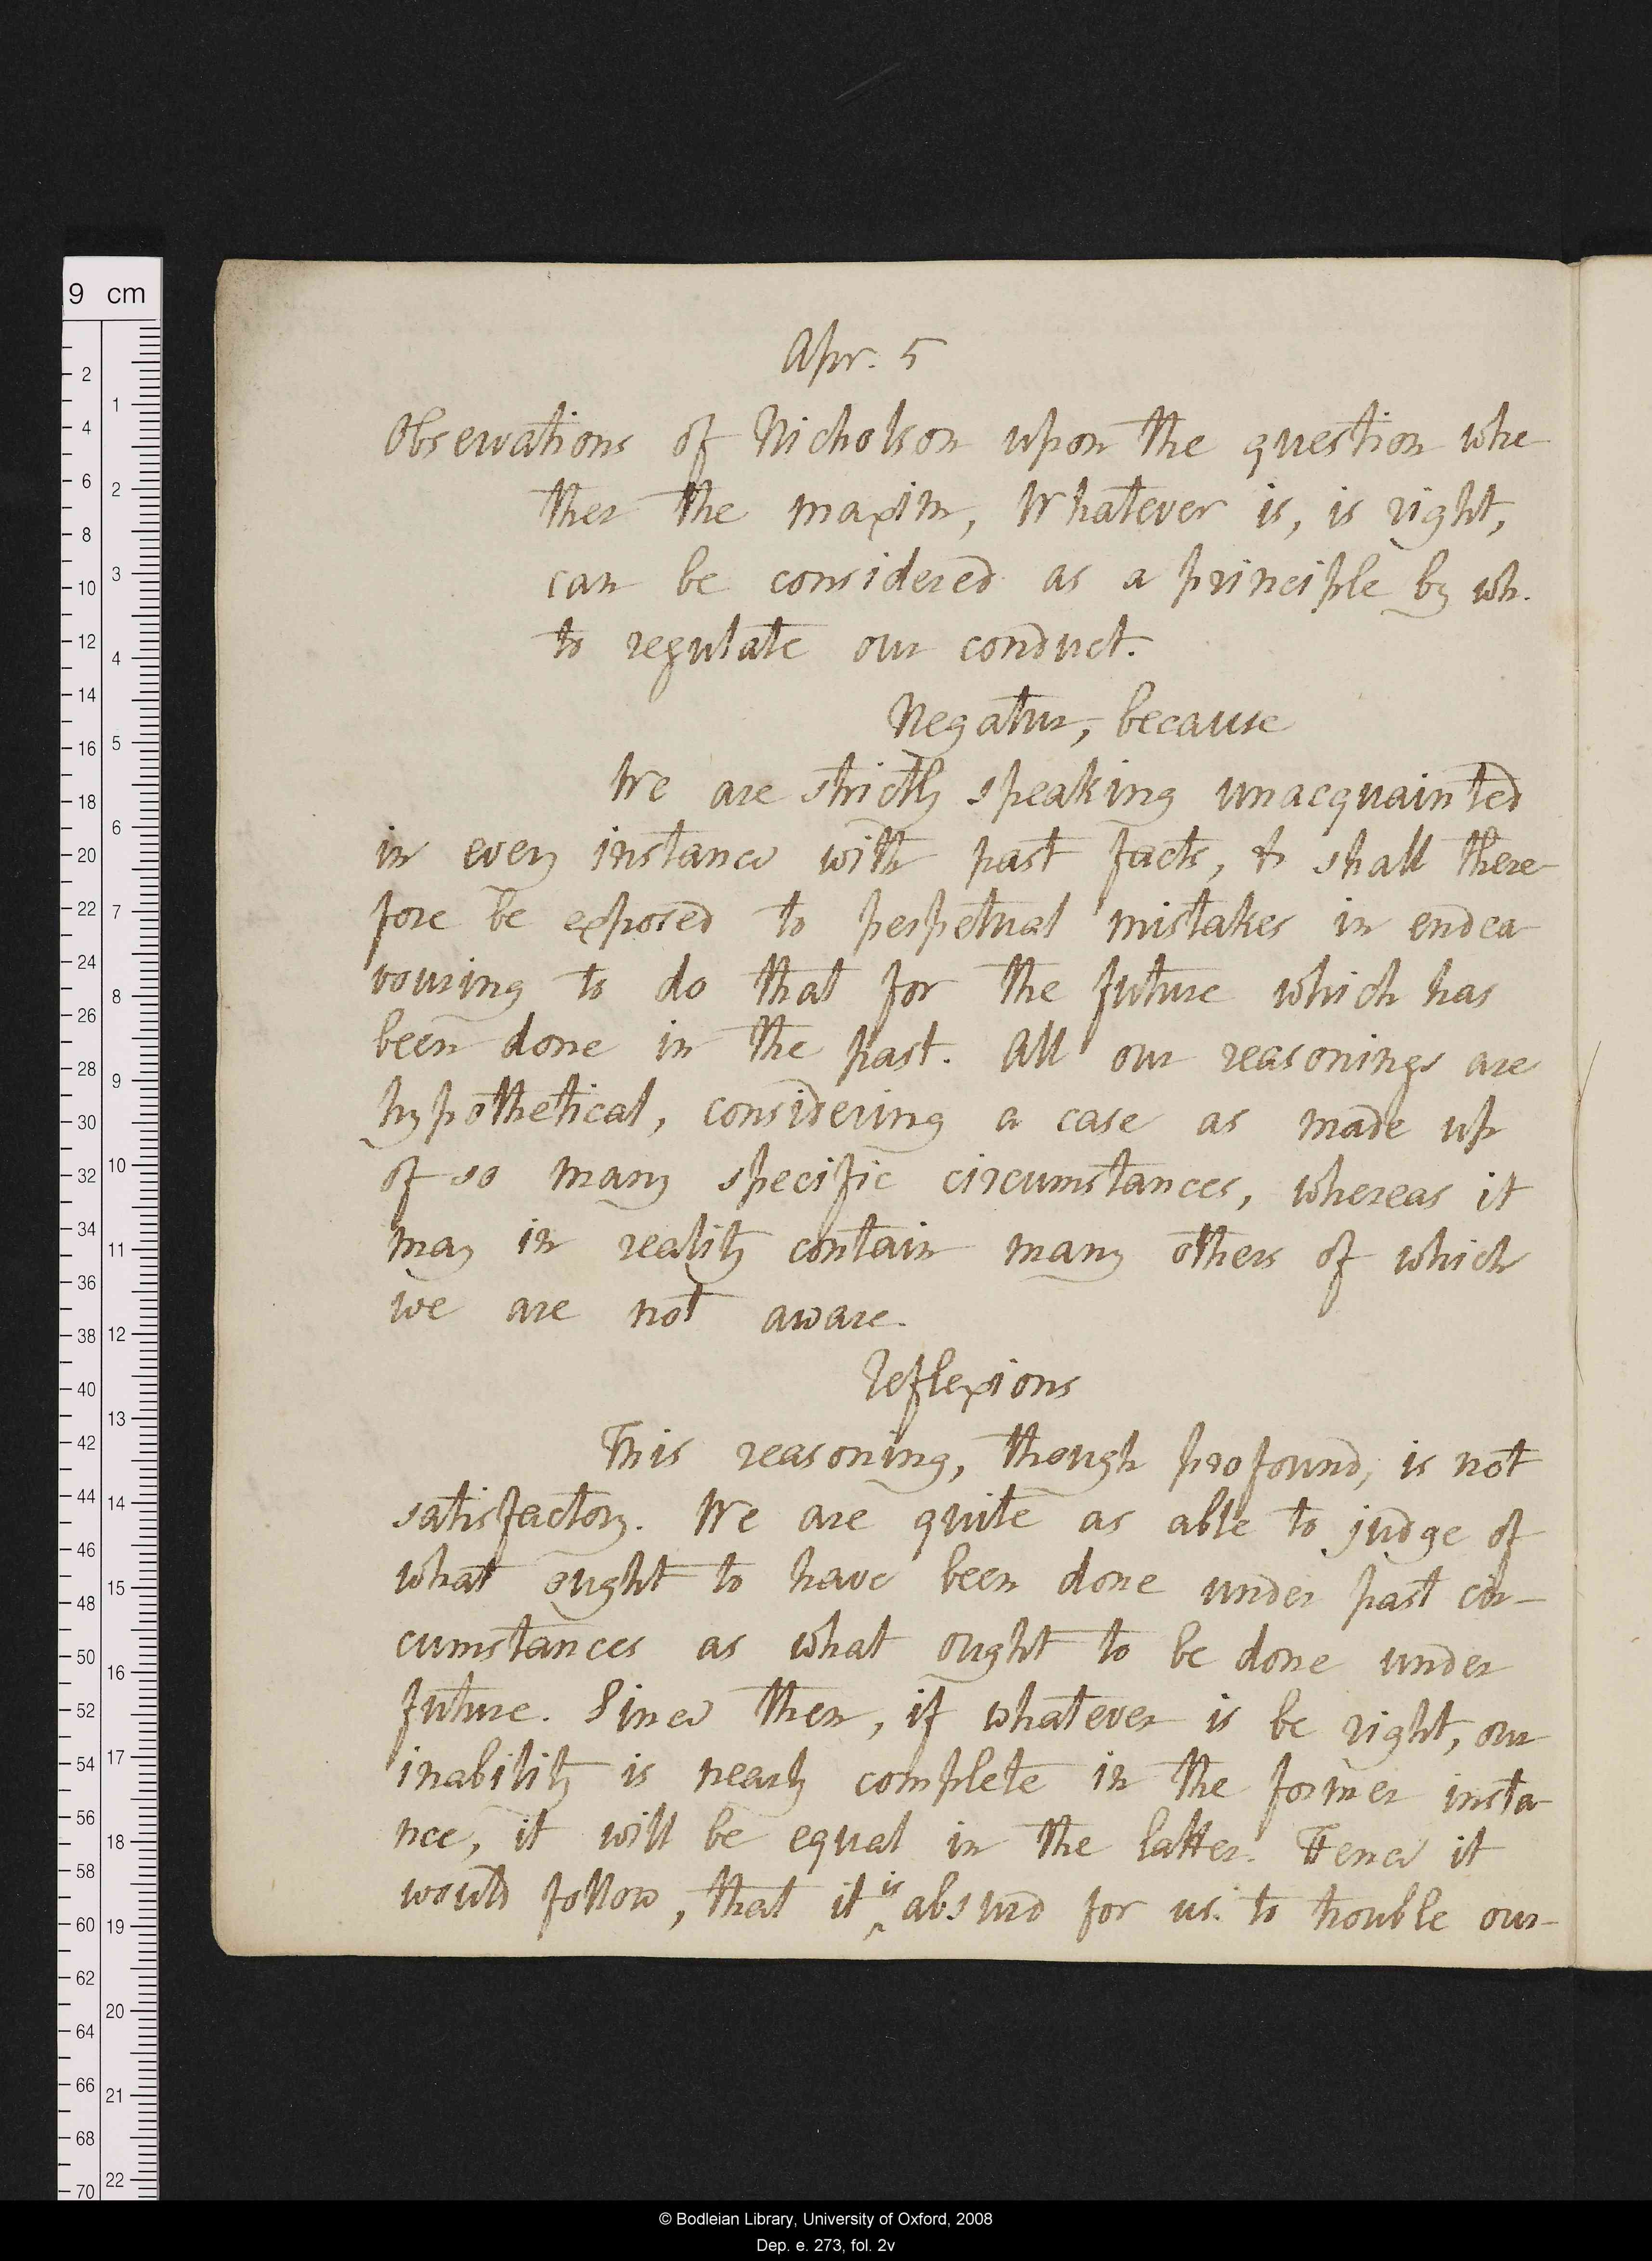 Apr. 5
Observations of Nicholson upon the question whe-
ther the maxim, Whatever is, is right,
can be considered as a principle by wh.
to regulate our conduct.
Negatur, because
We are strictly speaking unacquainted
in every instance with past facts, & shall there-
fore be exposed to perpetual mistakes in endea-
vouring to do that for the future which has
been done in the past. All our reasonings are
hypothetical, considering a case as made up
of so many specific circumstances, whereas it
may in reality contain many others of which
we are not aware.
Reflexions
This reasoning, though profound, is not
satisfactory. We are quite as able to judge of
what ought to have been done under past cir-
cumstances as what ought to be done under
future. Since then, if whatever is be right, our
inability is nearly complete in the former insta-
nce, it will be equal in the latter. Hence it
would follow, that it is absurd for us to trouble our-
9 cm
2
4
6
8
10
12
14
16
18
20
22
24
26
28
30
32
34
36
38
40
42
44
46
48
50
52
54
56
58
60
62
64
66
68
70
1
2
3
4
5
6
7
8
9
10
11
12
13
14
15
16
17
18
19
20
21
22
© Bodleian Library, University of Oxford, 2008
Dep. e. 273, fol. 2v